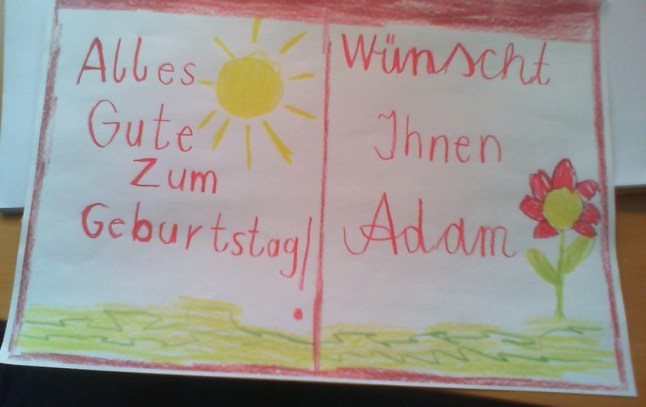 Alles
Gute
Zum
Geburtstag!
Wünscht
Ihnen
Adam